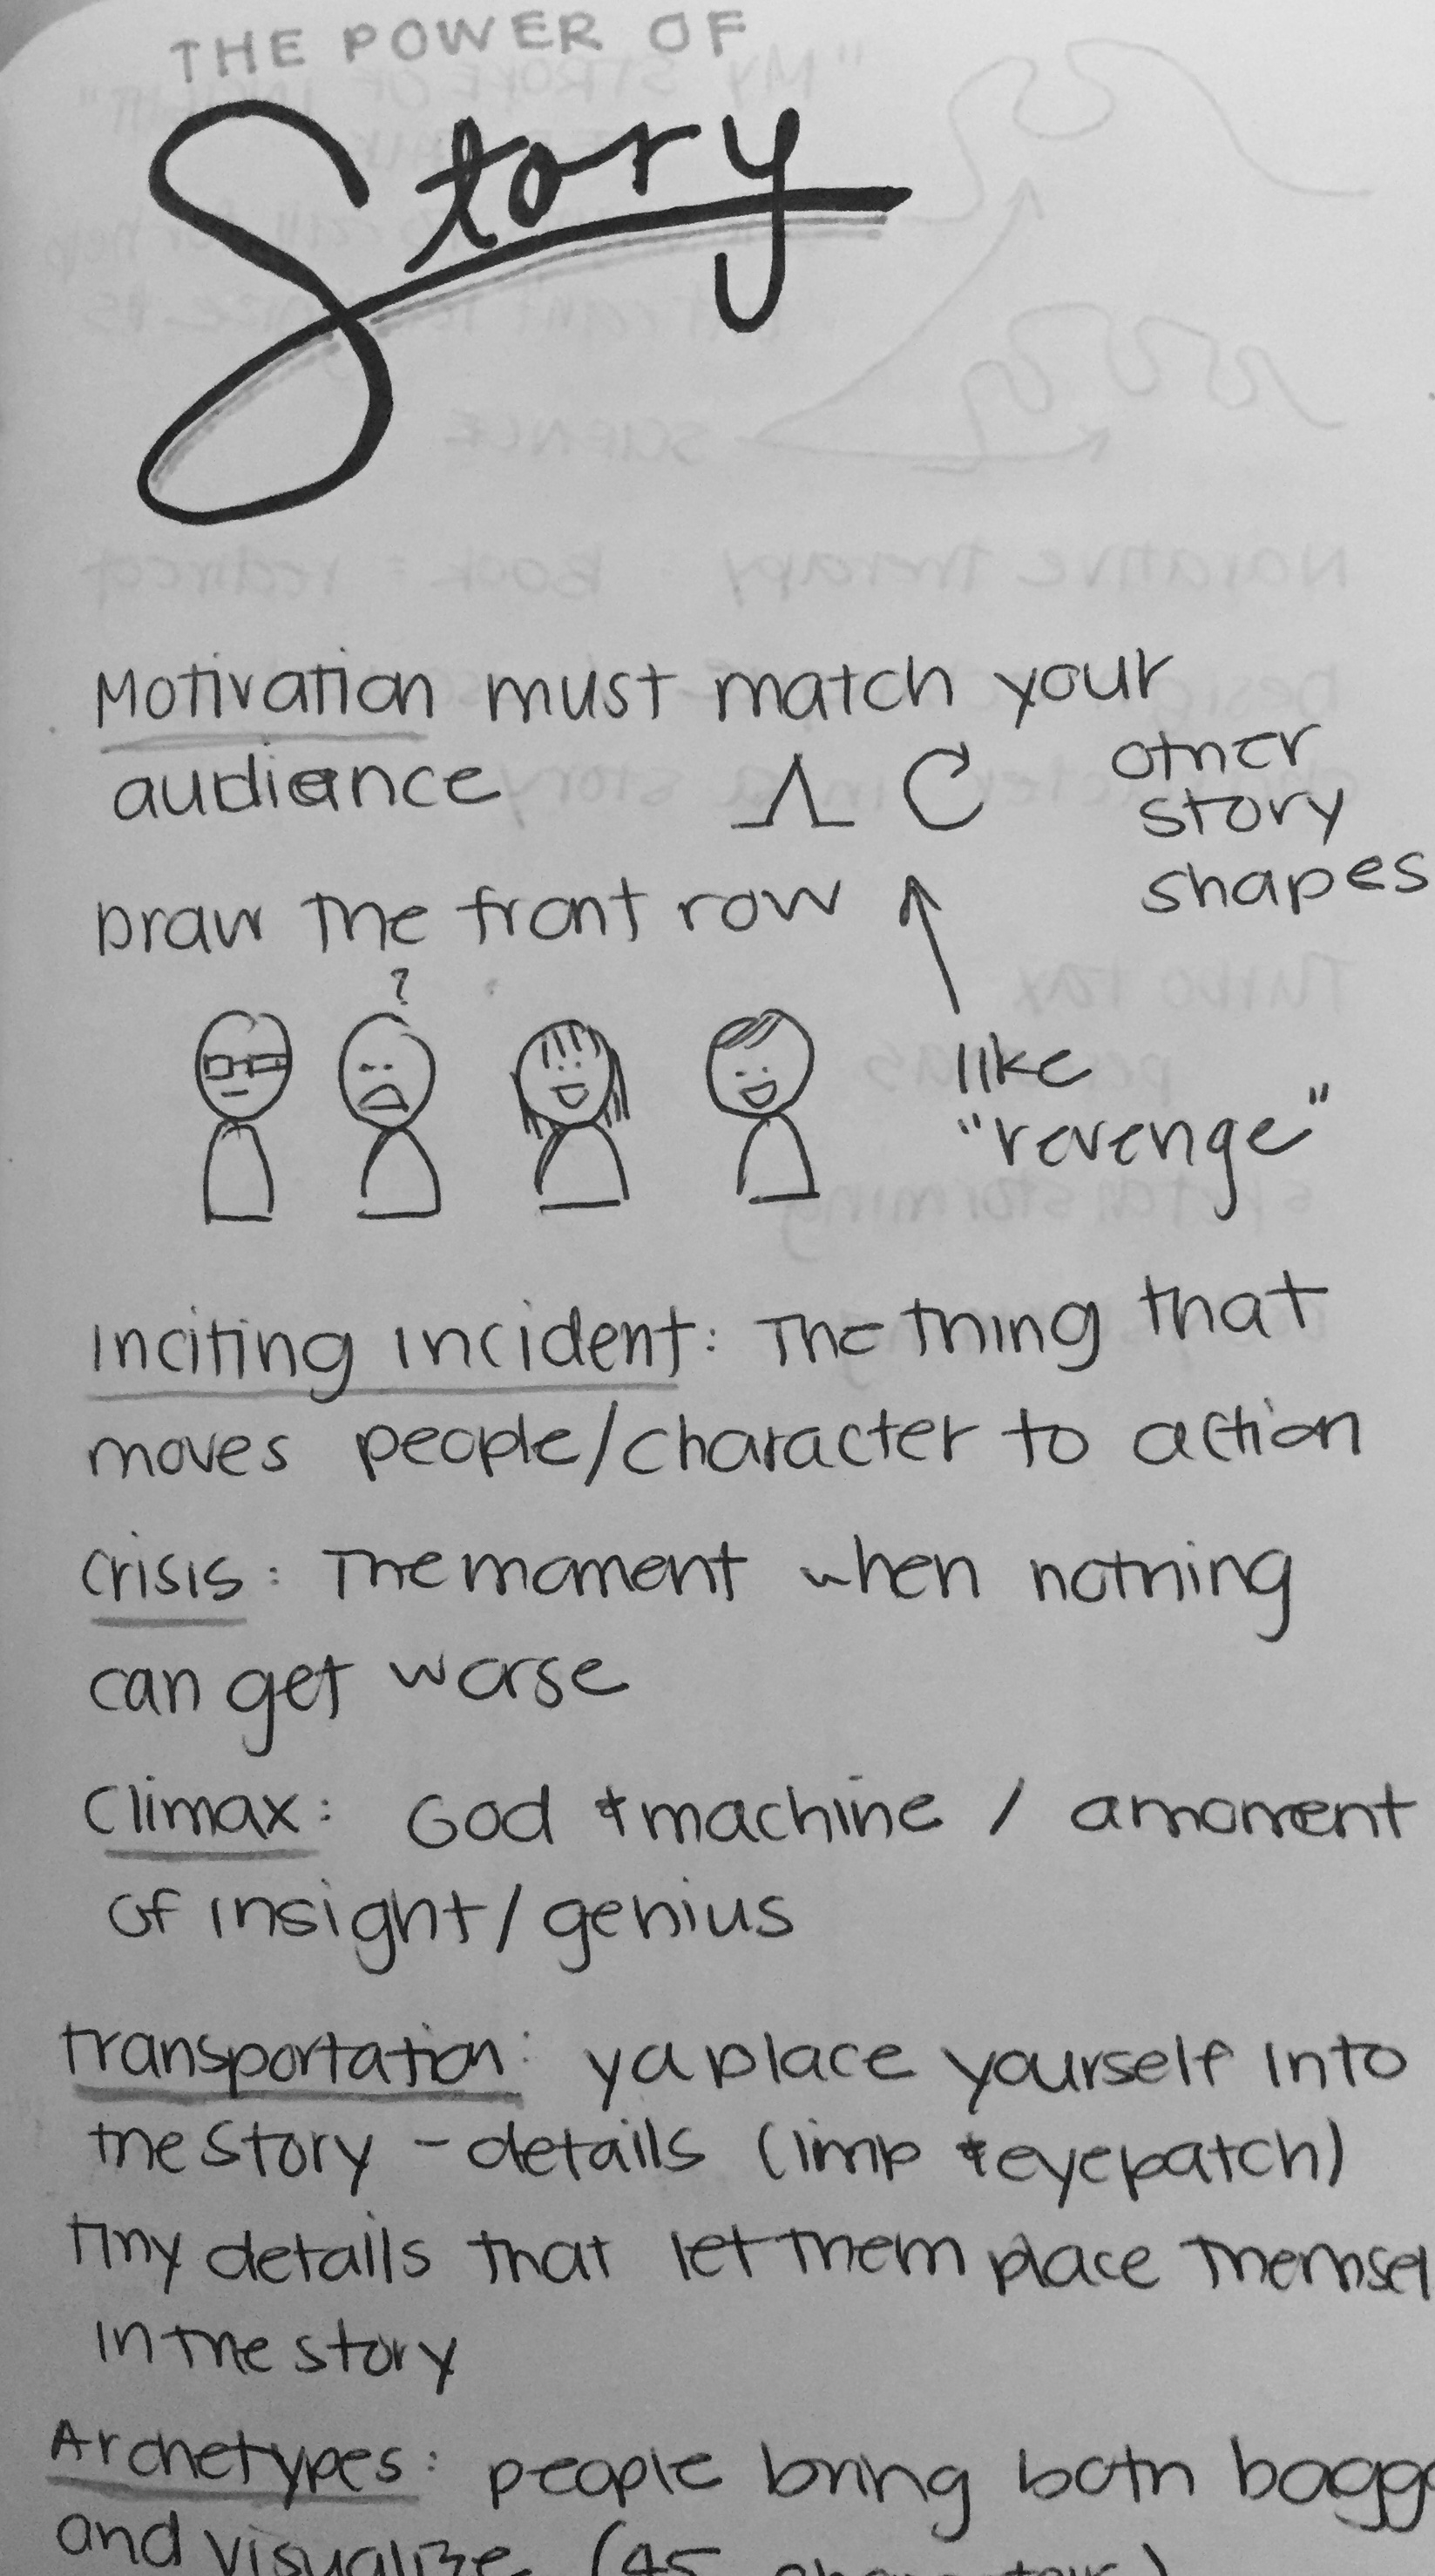 THE POWER OF
Story
Motivation must match your
audience
other
story
shapes
Draw the front row
?
like
"revenge"
Inciting incident: The thing that
moves people/character to action
Crisis: The moment when nothing
can get worse
Climax: God & machine / a moment
of insight/genius
transportation: ya place yourself into
the story - details (limp & eyepatch)
tiny details that let them place themsel
in the story
Archetypes: people bring both bagg
and visualize (45